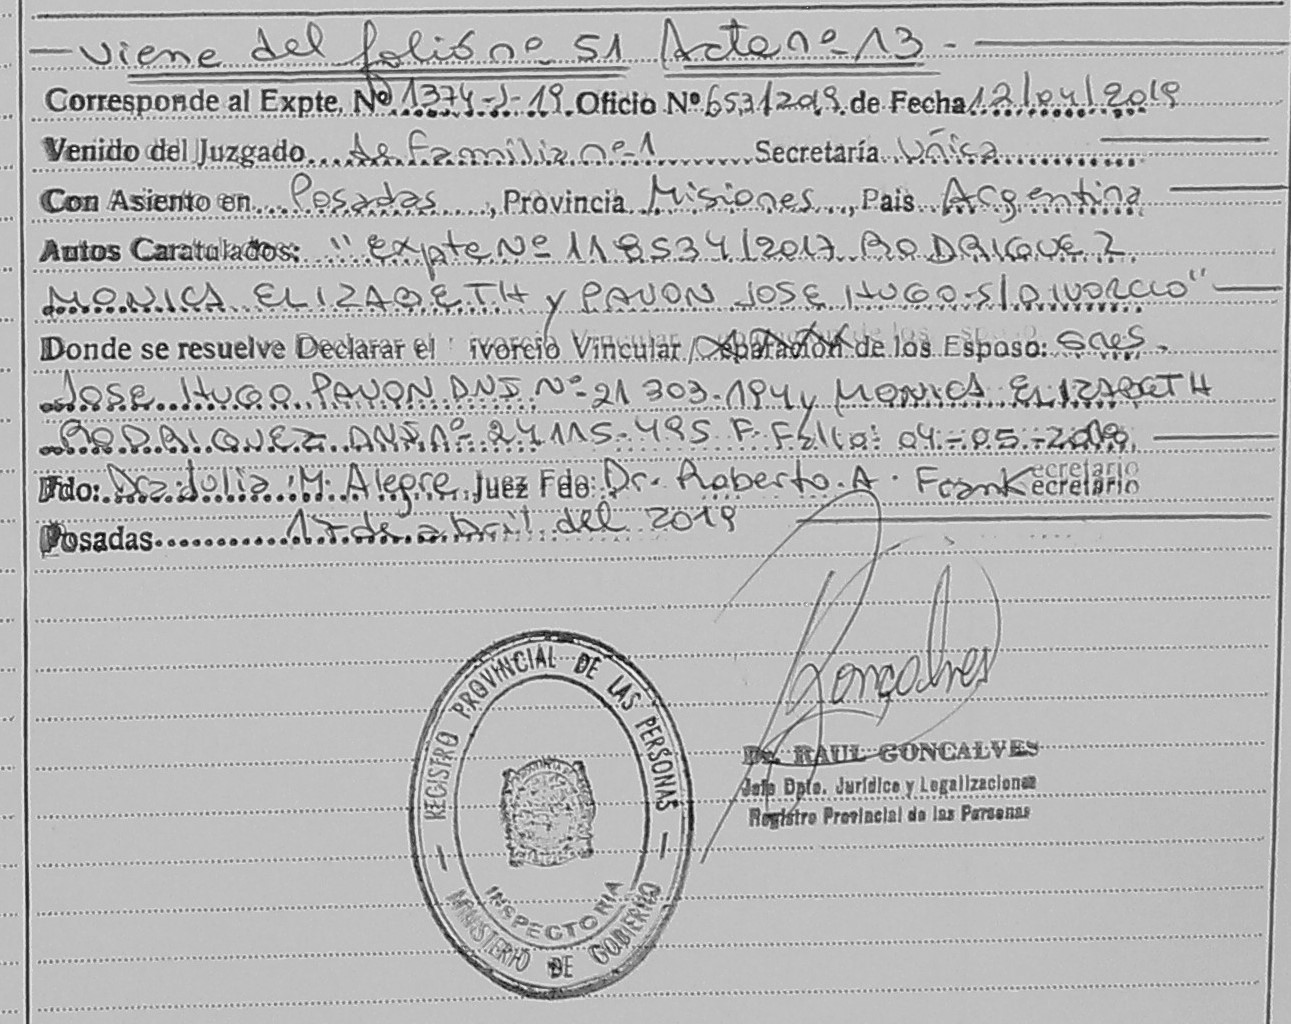 Viene del folio nº 51 Acta nº 13 -
Corresponde al Expte. Nº 1374-J-19. Oficio Nº 653/2019 de Fecha 12/04/2019
Venido del Juzgado de Familia nº 1 Secretaría Única
Con Asiento en Posadas, Provincia Misiones, Pais Argentina
Autos Caratulados: "Expte Nº 118534/2017 RODRIGUEZ
MONICA ELIZABETH y PAVON JOSE HUGO S/DIVORCIO"
Donde se resuelve Declarar el ivorcio Vincular / Separación de los Esposo: Sres.
JOSE HUGO PAVON DNI Nº 21 303.194 y MONICA ELIZABETH
RODRIGUEZ DNI Nº 24 115-495 F. Fallo: 04-05-
Fdo: Dra Julia M. Alegre Juez Fdo: Dr. Roberto A. Frank ecretario
Posadas 17 de abril del 2019
Gonçalves
Dr. RAUL GONCALVES
Jefe Dpto. Jurídico y Legalizaciones
Registro Provincial de las Personas
REGISTRO PROVINCIAL DE LAS PERSONAS
INSPECTORIA
MINISTERIO DE GOBIERNO